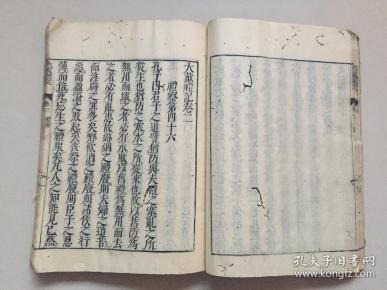 大戴禮記卷二
禮察第四十六
孔子曰君子之道譬猶防與夫禮之塞亂之所
從生也猶防之塞水之所從來也故以舊防為
無用而壞之者必有水敗以舊禮為無用而去
之者必有亂患故昏姻之禮廢則夫婦之道苦
而淫辟之罪多矣鄉飲酒之禮廢則
長幼之序失而爭鬭之獄繁矣聘射之禮廢則諸侯之行
惡而盈溢之敗起矣喪祭之禮廢則臣子之恩
薄而倍死忘生之禮衆矣凡人之知能見已然
孔夫子旧书网